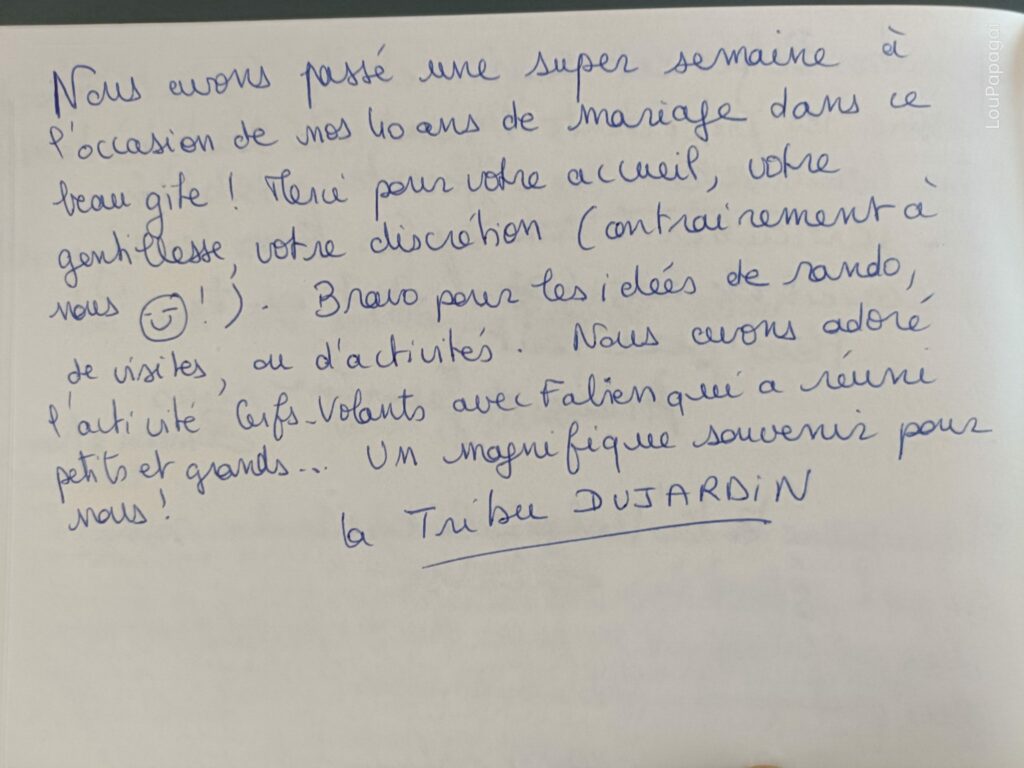 Nous avons passé une super semaine à
l'occasion de nos 40 ans de mariage dans ce
beau gite ! Merci pour votre accueil, votre
gentillesse, votre discrétion (contrairement à
nous !). Bravo pour les idées de rando,
de visites, ou d'activités. Nous avons adoré
l'activité Cerfs-Volants avec Fabien qui a réuni
petits et grands... Un magnifique souvenir pour
nous !
la Tribu DUJARDIN
LouPapagai